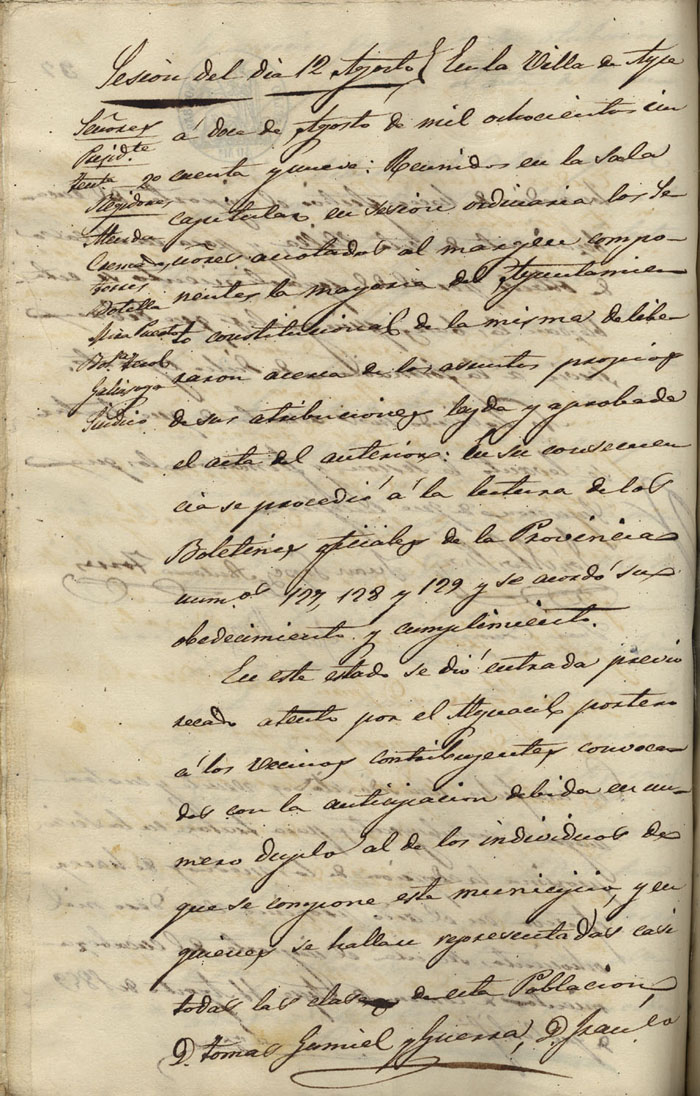 Sesion del dia 12 Agosto { En la Villa de Aspe
á doce de Agosto de mil ochocientos cin
cuenta y nueve: Reunidos en la Sala
capitular en sesion ordinaria los Se
ñores anotados al margen compo
nentes la mayoria del Ayuntamien
to constitucional de la misma delibe
raron acerca de los asuntos propios
de sus atribuciones leyda y aprobada
el acta del anterior: En su consecuen
cia se procedió á la lectura de los
Boletines oficiales de la Provincia
numos 127, 128 y 129 y se acordó su
obedecimiento y cumplimiento.
En este estado se dió entrada previo
recado atento por el Alguacil portero
á los vecinos contribuyentes convoca
dos con la anticipacion debida en nu-
mero duplo al de los individuos de
que se compone este municipio, y en
quienes se hallan representadas casi
todas las clases de esta Poblacion
D. Tomas Gumiel y Guerra, D. Franco
Señores
Presidte
Tente 2o
Regidores
Almodar
Cremades
Torres
Botella
Mira
Galiopa
Sindico